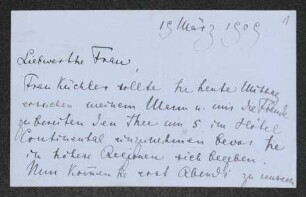 1
19 März 1909
Liebwerthe Frau,
Frau Küchler sollte Sie heute Mittag
meinem Mann u. uns die Freude
zu bereiten den Thee um 5 im Hôtel
Continental einzunehmen bevor Sie
in höhere Regionen sich begeben.
Nun kommt erst Abends zu uns